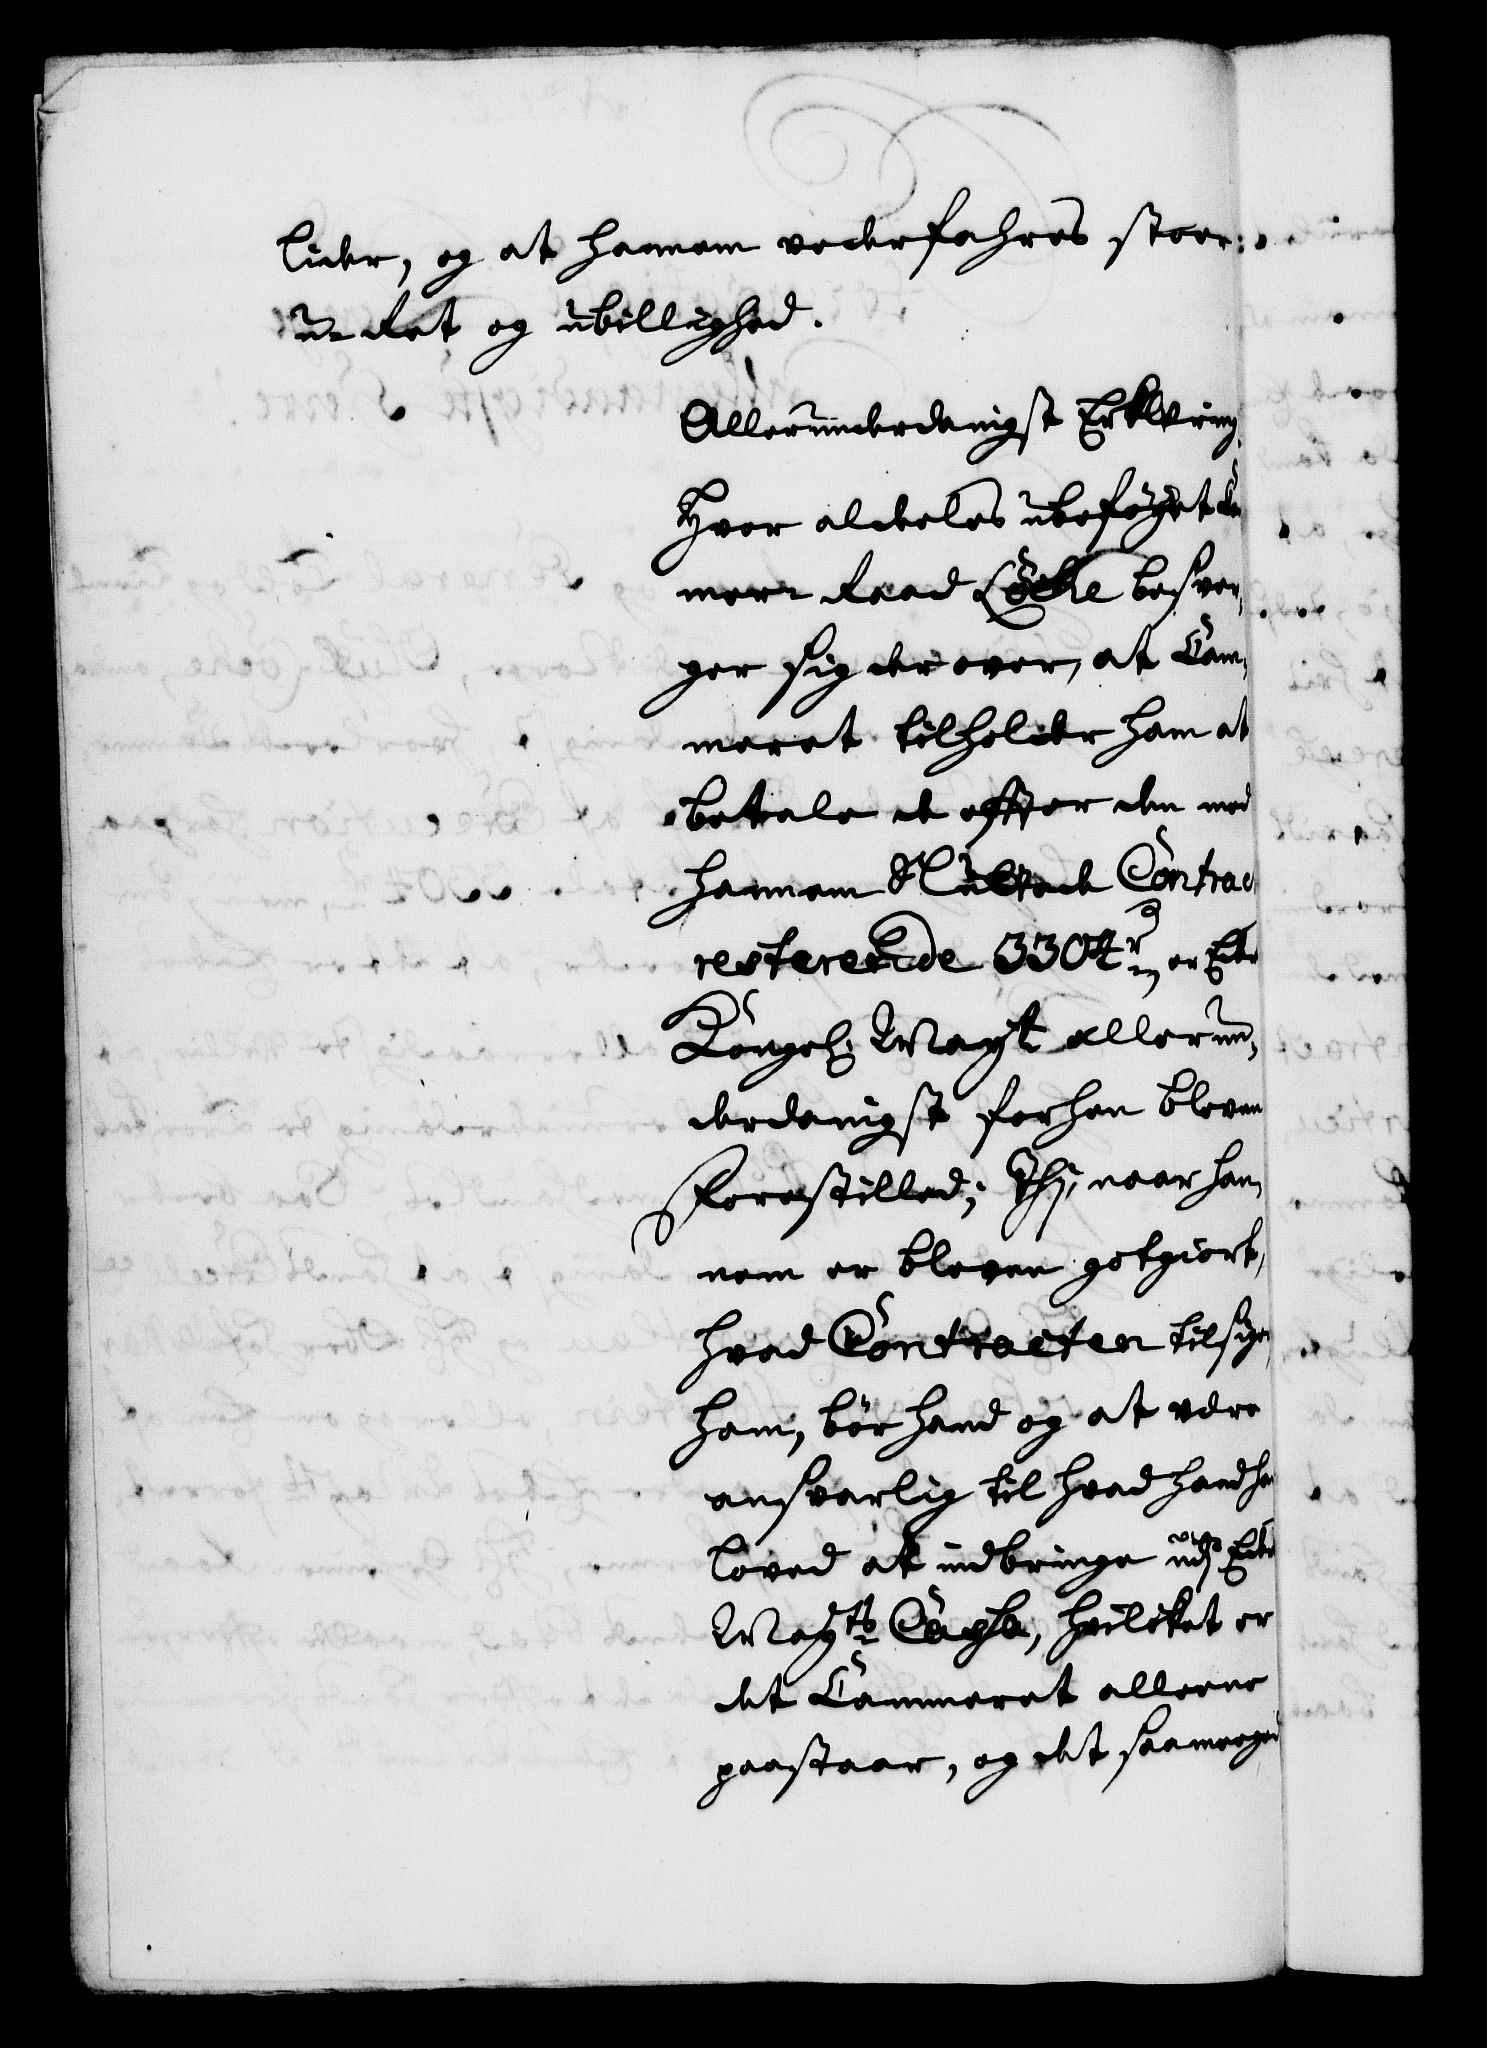 lider, og at hannem vederfahres stoer
u-Ret og ubillighed.
Allerunderdanigst Erklæring.
Hvor aldeles ubeføyet
mer-Raad Cöthe besver,
ger sig derover, at Cam,
meret tilholder ham at
betale de effter den med
hannem sluttede Contrac
resterende 3304 er Eders
Kongel: Mayt allerun,
derdanigst forhen bleven
Forestilled; Thi, naar han,
nem er bleven gotgiort,
hvad Contracten tilsiger
ham, bör hand og at være
ansvarlig til hvad hand ha
loved at indbringe udj Eders
Mayts Cassa, hvilcket er
det Cammeret alleene
paastaar, og det saameeget